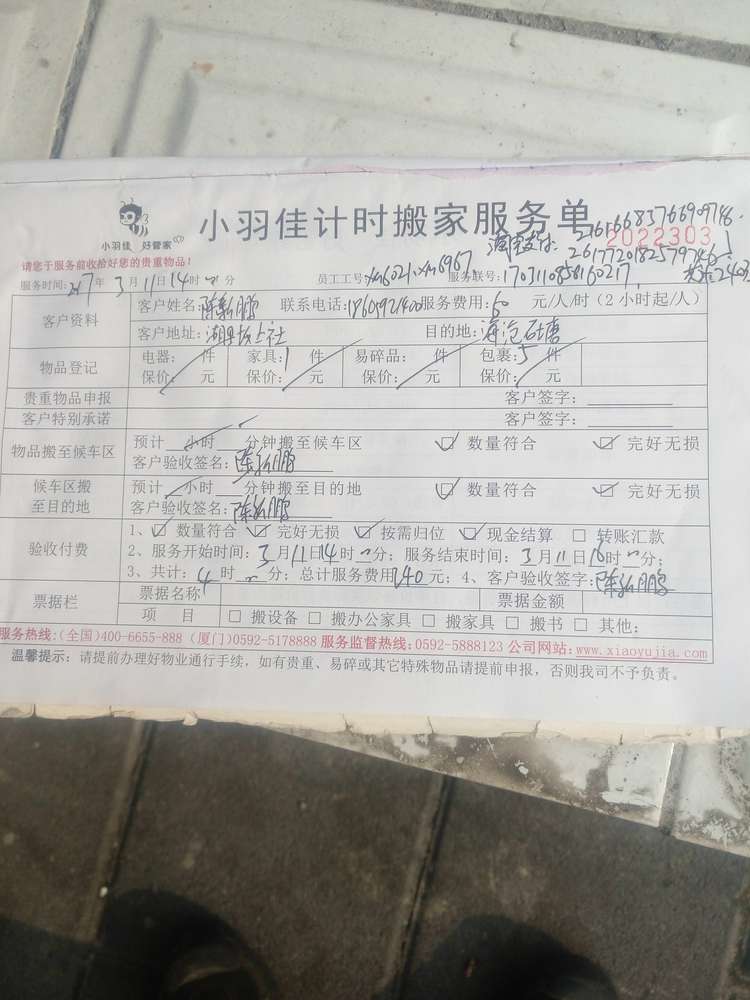 小羽佳 好管家
小羽佳计时搬家服务单
2022303
请您于服务前收拾好您的贵重物品!
淘宝支付:
服务时间: 217年 3月11日14时 分 员工工号: xm6021.xm6967 服务联号: 1703110858160217
客户资料
客户姓名: 联系电话: 服务费用: 60 元/人/时 (2 小时起/人)
客户地址: 目的地: 海沧石塘
物品登记
电器: 件 家具: 1 件 易碎品: 件 包裹: 5 件
保价: 元 保价: 元 保价: 元 保价: 元
贵重物品申报 客户签字:
客户特别承诺 客户签字:
物品搬至候车区
预计 小时 分钟搬至候车区 ☑ 数量符合 ☑ 完好无损
客户验收签名:
候车区搬至目的地
预计 小时 分钟搬至目的地 ☑ 数量符合 ☑ 完好无损
客户验收签名:
验收付费
1、☑ 数量符合 ☑ 完好无损 ☑ 按需归位 ☑ 现金结算 □ 转账汇款
2、服务开始时间: 3月11日14时 分; 服务结束时间: 3月11日 时 分;
3、共计: 4 时 分; 总计服务费用 240 元; 4、客户验收签字:
票据栏
票据名称 票据金额
项 目 □ 搬设备 □ 搬办公家具 □ 搬家具 □ 搬书 □ 其他:
服务热线:(全国)400-6655-888 (厦门)0592-5178888 服务监督热线:0592-5888123 公司网站:www.xiaoyujia.com
温馨提示: 请提前办理好物业通行手续, 如有贵重、易碎或其它特殊物品请提前申报, 否则我司不予负责。